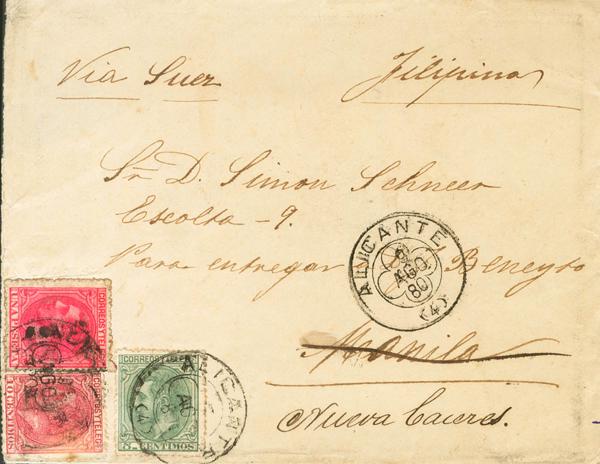 Via Suez
Filipinas
Sr. D. Simon Schneer
Escolta - 9.
Para entregar Beneyto
Manila
Nueva Caceres.
ALICANTE
AGO
80
(4)
CORREOS Y TELEG
10 CENTIMOS
CORREOS Y TELEG
5 CENTIMOS
ALICANTE